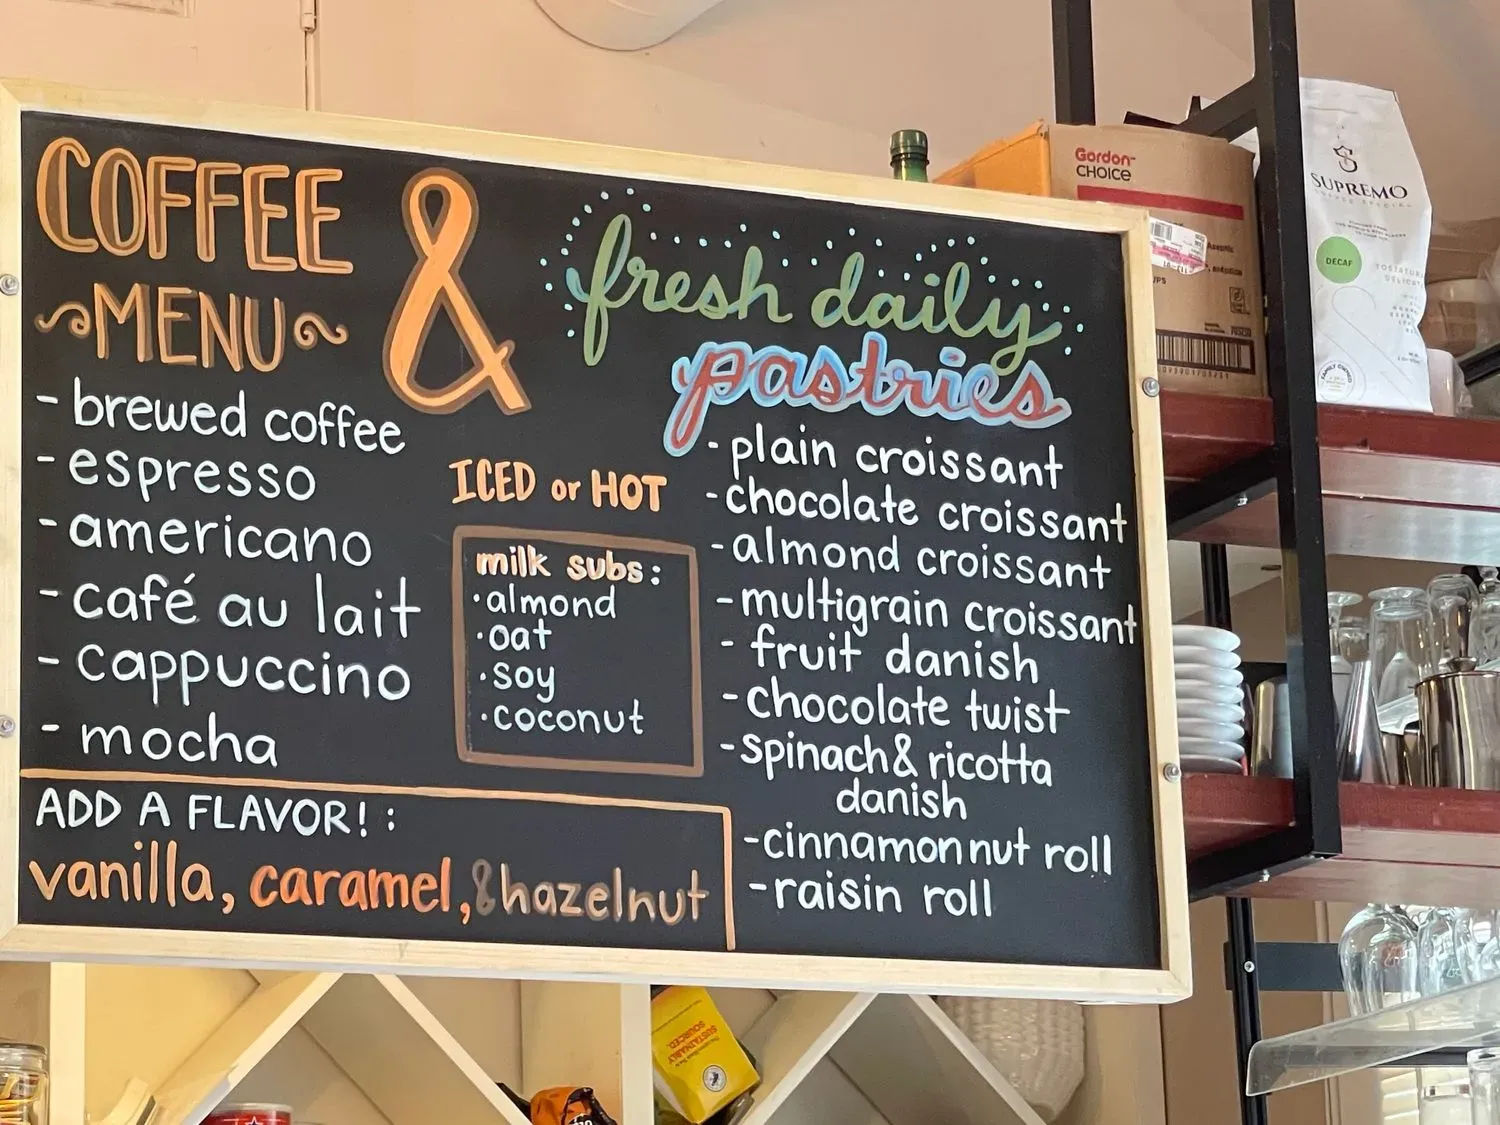 COFFEE
MENU
&
fresh daily
pastries
- brewed coffee
- espresso
- americano
- café au lait
- cappuccino
- mocha
ICED or HOT
milk subs:
·almond
·oat
·soy
·coconut
- plain croissant
- chocolate croissant
- almond croissant
- multigrain croissant
- fruit danish
- chocolate twist
- spinach & ricotta
danish
- cinnamon nut roll
- raisin roll
ADD A FLAVOR! :
vanilla, caramel, & hazelnut
Gordon
CHOICE
SUPREMO
DECAF
SUSTAINABLY
SOURCED.